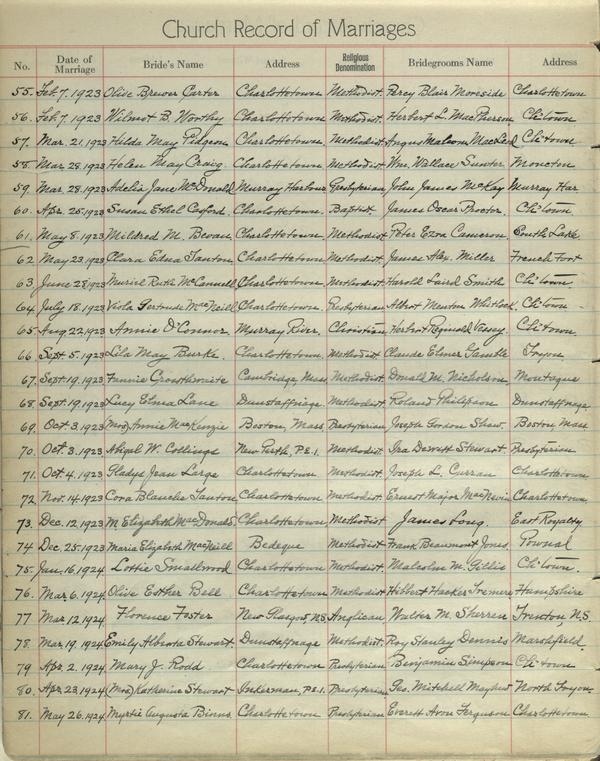 Church Record of Marriages
No. Date of Marriage Bride's Name Address Religious Denomination Bridegrooms Name Address
55. Feb. 7. 1923 Olive Brewer Carter Charlottetown Methodist. Percy Blair Moreside Charlottetown
56. Feb. 7 1923 Wilmot B. Worthy Charlottetown Methodist. Herbert L. MacPherson Ch'town
57. Mar. 21, 1923 Hilda May Pidgeon Charlottetown Methodist Angus Malcom MacLeod Ch'town
58. Mar. 28, 1923 Helen May Craig Charlottetown Methodist Wm. Wallace Sunter Moncton
59. Mar. 28, 1923 Adelia Jane McDonald Murray Harbour Presbyterian John James McKay Murray Har
60. Apr. 25, 1923 Susan Ethel Charlottetown. Baptist. James Oscar Proctor. Ch'town
61. May 8. 1923 Mildred M. Bevan Charlottetown. Methodist Peter Ezra Cameron South Lake
62 May 23, 1923 Clara Edna Santon Charlottetown. Methodist James Alex. Miller French Fort
63 June 28, 1923 Muriel Ruth McCannell Charlottetown Methodist Harold Laird Smith Ch'town
64. July 18. 1923 Viola Gertrude MacNeill Charlottetown. Presbyterian Albert Menton Whitlock. Ch'town
65. Aug. 22, 1923 Annie O'Connor Murray River, Christian Herbert Reginald Ch'town
66. Sept. 5. 1923 Lila May Burke. Charlottetown. Methodist Claude Elmer Gamble Tryon
67. Sept. 19. 1923 Fannie Cambridge Mass Methodist. Donald M. Nicholson. Montague
68. Sept. 19. 1923 Lucy Elma Lane Dunstaffnage Methodist. Roland Philipson Dunstaffnage
69. Oct. 3. 1923 (Mrs) Annie MacKenzie Boston, Mass Presbyterian Joseph Gordon Shaw. Boston Mass
70. Oct. 3. 1923 W. Collings New Perth, P.E.I. Methodist. Ira Dewitt Stewart. Presbyterian
71. Oct. 4. 1923 Gladys Jean Large Charlottetown Methodist. Joseph L. Curran Charlottetown
72 Nov. 14. 1923 Cora Blanche Santon Charlottetown Methodist. Ernest Major MacNevin Charlottetown
73 Dec. 12. 1923 M. Elizabeth MacDonald. Charlottetown Methodist James Long. East Royalty
74 Dec. 25. 1923 Maria Elizabeth MacNeill Bedeque Methodist Frank Beaumont Jones. Pownal
75. Jan. 16, 1924 Lottie Smallwood Charlottetown Methodist. Malcolm M. Gillis Ch'town.
76. Mar. 6, 1924 Olive Esther Bell Charlottetown Methodist Hibbert Hampshire
77 Mar. 12 1924 Florence Foster New Glasgow, N.S. Anglican Walter M. Sherren Trenton N.S.
78. Mar. 19, 1924 Emily Alberta Stewart. Dunstaffnage Methodist. Roy Stanley Dennis Marshfield.
79 Apr. 2. 1924 Mary J. Rodd Charlottetown Presbyterian Benjamin Simpson Ch'town
80. Apr. 23, 1924 (Mrs) Katherine Stewart Inkerman, P.E.I. Presbyterian Geo. Mitchell North Tryon
81. May 26, 1924 Myrtie Augusta Binns. Charlottetown Presbyterian Everett Avon Ferguson Charlottetown.